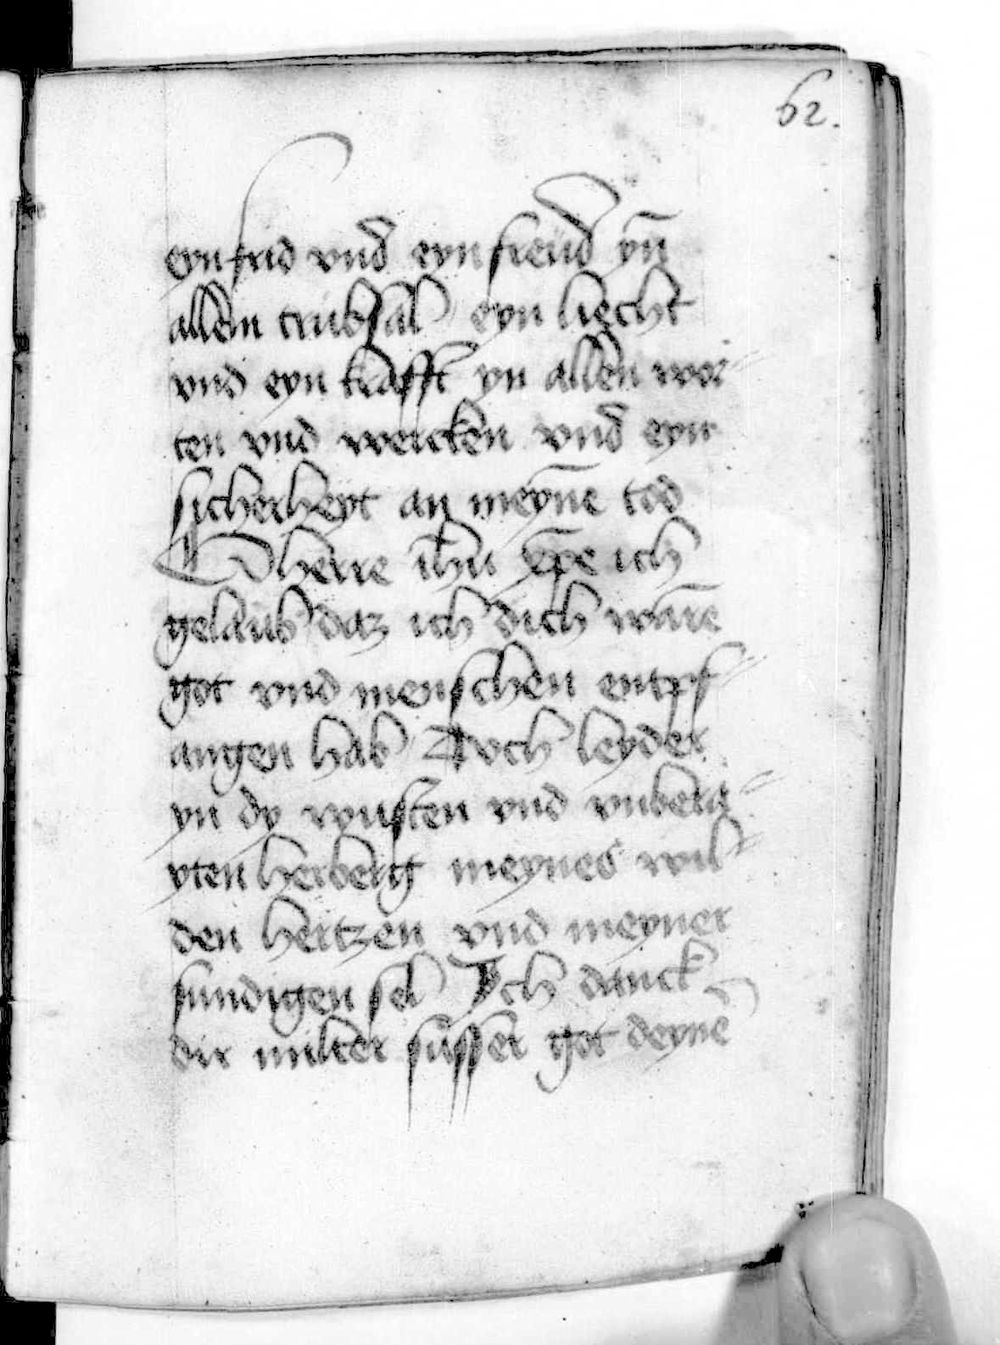 62.
eyn frid vnd eyn freud yn̄
allem trubsal eyn liecht
vnd eyn krafft yn allen wor⸗
ten vnd wercken vnd eyn
sicherheyt an meyne̅ tod
O herre ih̅u xp̅e ich
gelaub daz ich dich ware̅
got vnd menschen entpf⸗
angen hab Doch leyder
yn dy wusten vnd vnberey⸗
yten herberg meynes wil⸗
den hertzen vnd meyner
sundigen sel Ych danck
dir milter susser got deyne̅